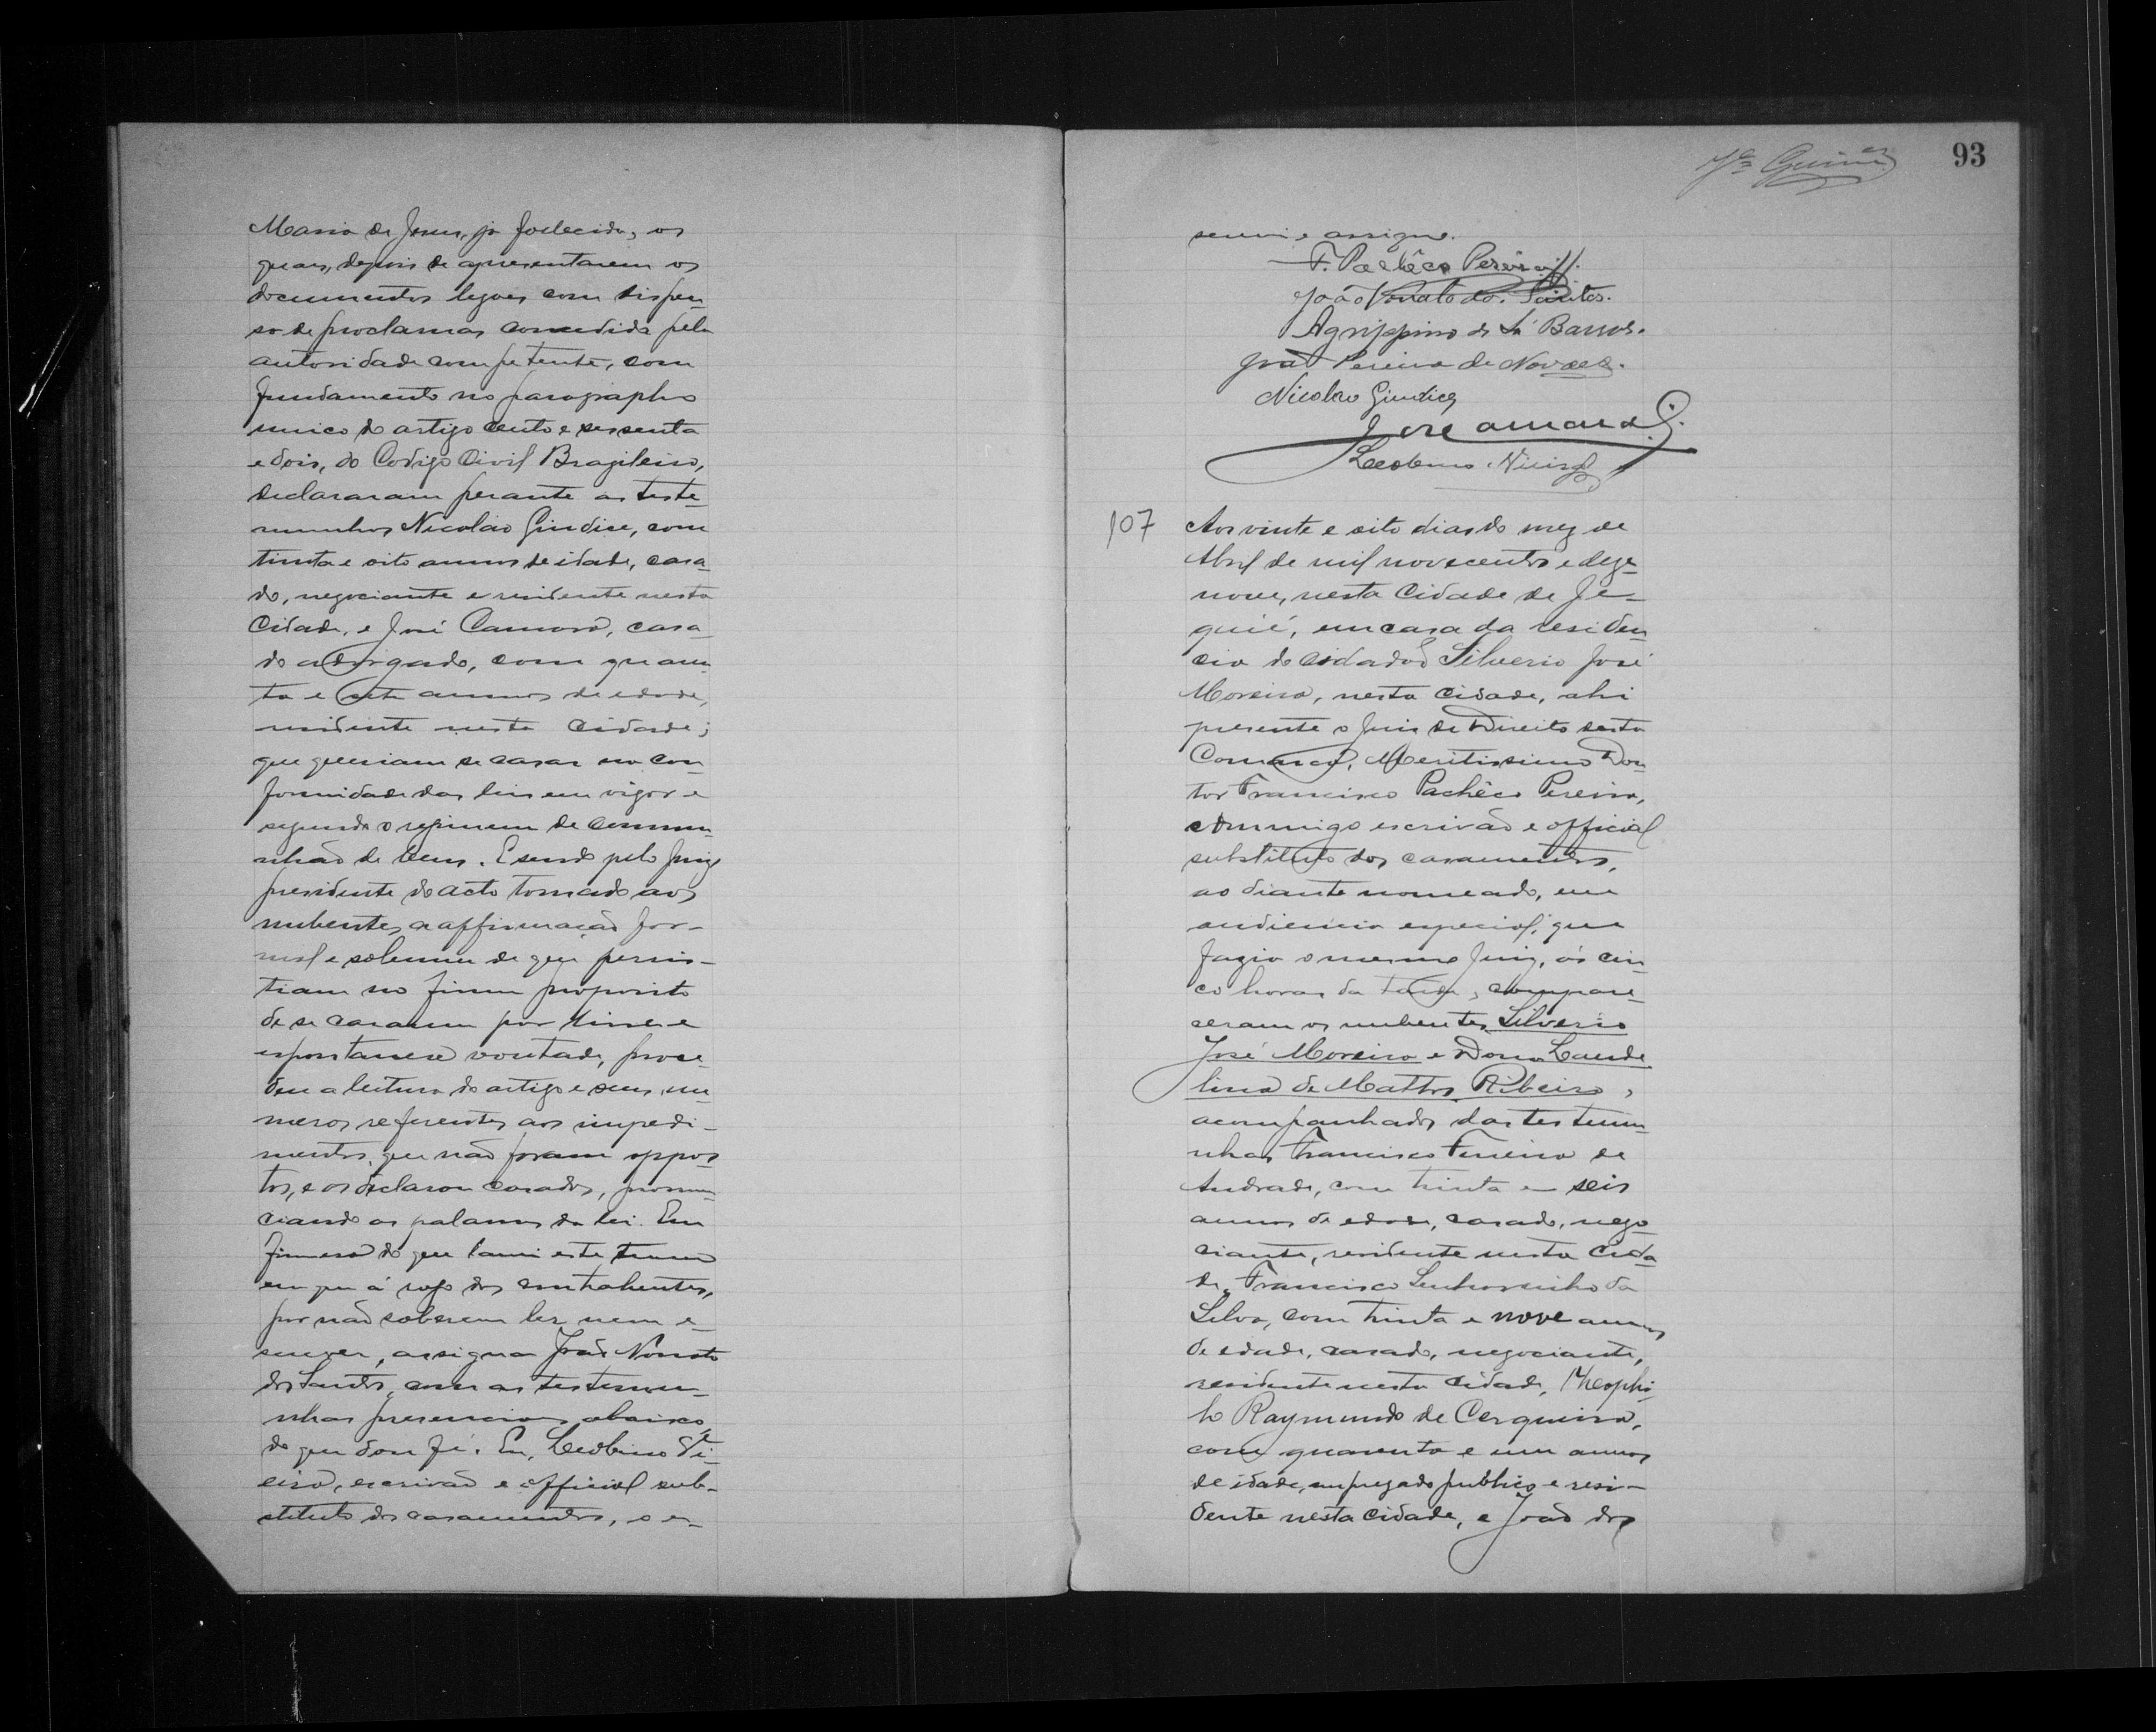 Maria de Jesus, ja fallecida, os
quaes, depois de apresentarem os
documentos legaes com dispen-
sa de proclamas concedida pela
autoridade competente, com
fundamento no paragrapho
unico do artigo cento e sessenta
e dois, do Codigo Civil Brazileiro,
declararam perante as teste-
munhas Nicoláo Giudice, com
trinta e oito annos de idade, casa-
do, negociante e residente nesta
Cidade, e José Camará, casa-
do advogado, com quaren-
ta e sete annos de edade,
residente nesta Cidade;
que queriam se casar na con-
formidade das leis em vigor e
segundo o regimem de commu-
nhão de bens. E sendo pelo Juiz
presidente do acto tomado aos
nubentes a affirmação for-
mal e solemne de que persis-
tiam no firme proposito
de se casarem por livre e
espontanea vontade, proce-
deu a leitura do artigo e seus nu-
meros referentes aos impedi-
mentos, que não foram oppos-
tos, e os declarou casados, pronun-
ciando as palavras da lei. Em
firmesa do que lavrei este termo
em que á rogo dos contrahentes,
por não saberem ler nem es-
crever, assigna João Nonato
dos Santos, com as testemu-
nhas presenciaes abaixo,
do que dou fé. Eu, Leobino Vi-
eira, escrivão e official sub-
stituto dos casamentos, o es-
93
screvi e assigno.
F. Pachêco Pereira
João Nonato dos Santos.
Agrippino de Sá Barros.
João Pereira de Novaes.
Nicoláo Giudice
José
Leobino Vieira
107 Aos vinte e oito dias do mez de
Abril de mil novecentos e deze-
nove, nesta Cidade de Je-
quié, em casa da residen-
cia do cidadão Silverio José
Moreira, nesta Cidade, ahi
presente o Juiz de Direito desta
Comarca, Meritissimo Dou-
tor Francisco Pachêco Pereira,
commigo escrivão e official
substituto dos casamentos,
ao diante nomeado, em
audiencia especial, que
fazia o mesmo Juiz, ás cin-
co horas da tarde, compare-
ceram os nubentes Silverio
José Moreira e Dona Laude-
lina de Mattos Ribeiro,
acompanhados das testemu-
nhas Francisco Ferreira de
Andrade, com trinta e seis
annos de edade, casado, nego-
ciante, residente nesta Cida-
de, Francisco Senhorinho da
Silva, com trinta e nove annos
de edade, casado, negociante,
residente nesta cidade, Theophi-
lo Raymundo de Cerqueira,
com quarenta e um annos
de idade, empregado publico e resi-
dente nesta cidade, e João dos